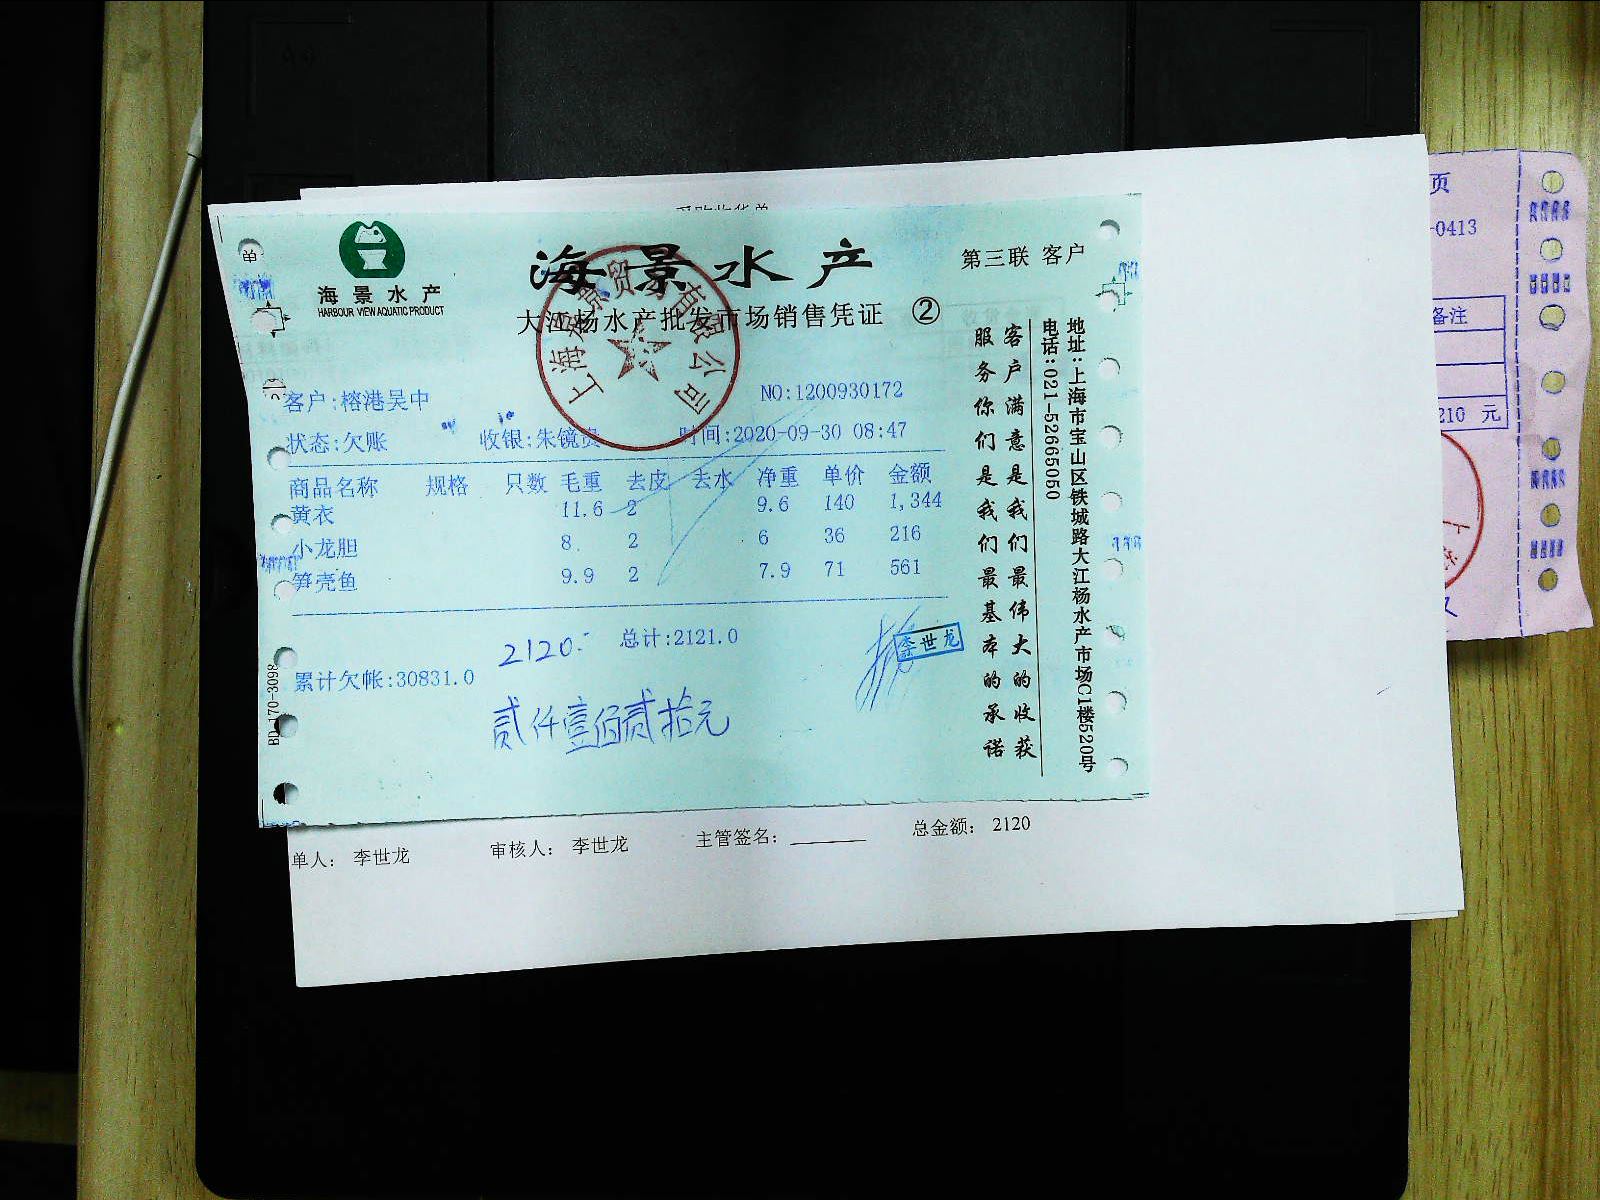 单
海景水产
HARBOUR VIEW AQUATIC PRODUCT
海景水产
第三联 客户
大江杨水产批发市场销售凭证 ②
上海海景贸易有限公司
客户:榕港吴中
NO:1200930172
状态:欠账 收银:朱镜贵 时间:2020-09-30 08:47
商品名称 规格 只数 毛重 去皮 去水 净重 单价 金额
黄衣 11.6 2 9.6 140 1,344
小龙胆 8 2 6 36 216
笋壳鱼 9.9 2 7.9 71 561
2120.- 总计:2121.0
李世龙
累计欠帐:30831.0
贰仟壹佰贰拾元
BD170-3098
客户满意是我们最伟大的收获
服务你们是我们最基本的承诺
地址:上海市宝山区铁城路大江杨水产市场C1楼520号
电话:021-52665050
单人: 李世龙 审核人: 李世龙 主管签名: 总金额: 2120
页
-0413
备注
210 元